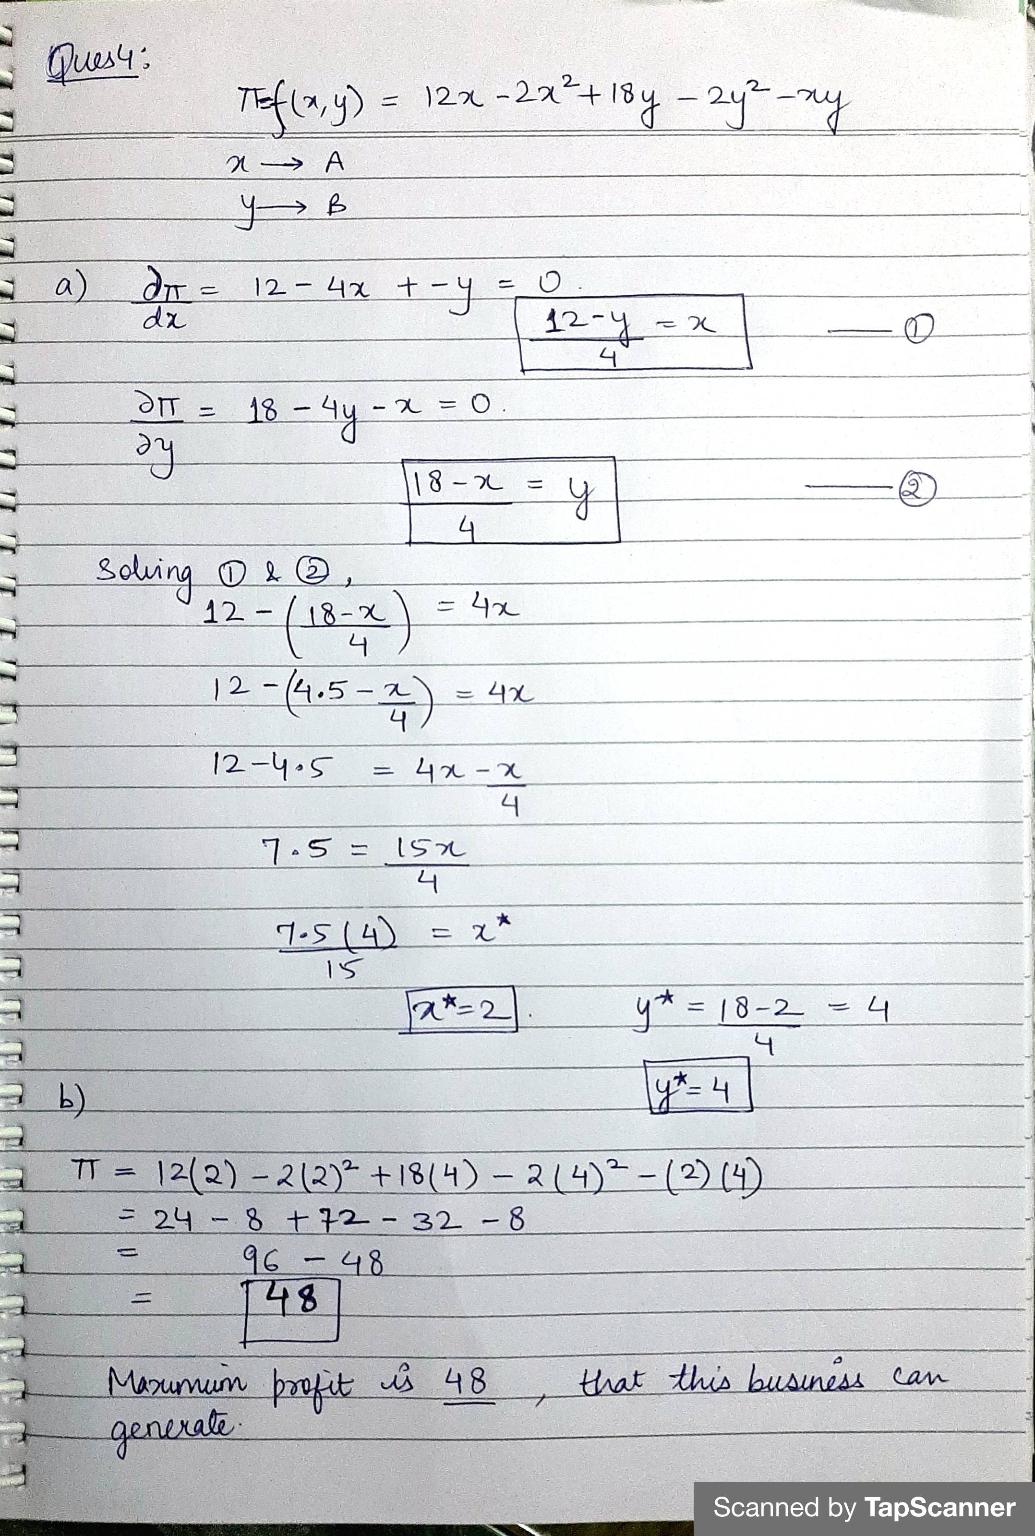 Ques 4:
π=f(x,y) = 12x - 2x² + 18y - 2y² - xy
x → A
y → B
a) ∂π/dx = 12 - 4x + - y = 0.
(12-y)/4 = x —— ①
∂π/∂y = 18 - 4y - x = 0.
(18-x)/4 = y —— ②
Solving ① & ②,
12 - ((18-x)/4) = 4x
12 - (4.5 - x/4) = 4x
12-4.5 = 4x - x/4
7.5 = 15x/4
7.5(4)/15 = x*
x*=2. y* = (18-2)/4 = 4
y*= 4
b)
π = 12(2) - 2(2)² + 18(4) - 2(4)² - (2)(4)
= 24 - 8 + 72 - 32 - 8
= 96 - 48
= 48
Maximum profit is 48, that this business can
generate.
Scanned by TapScanner